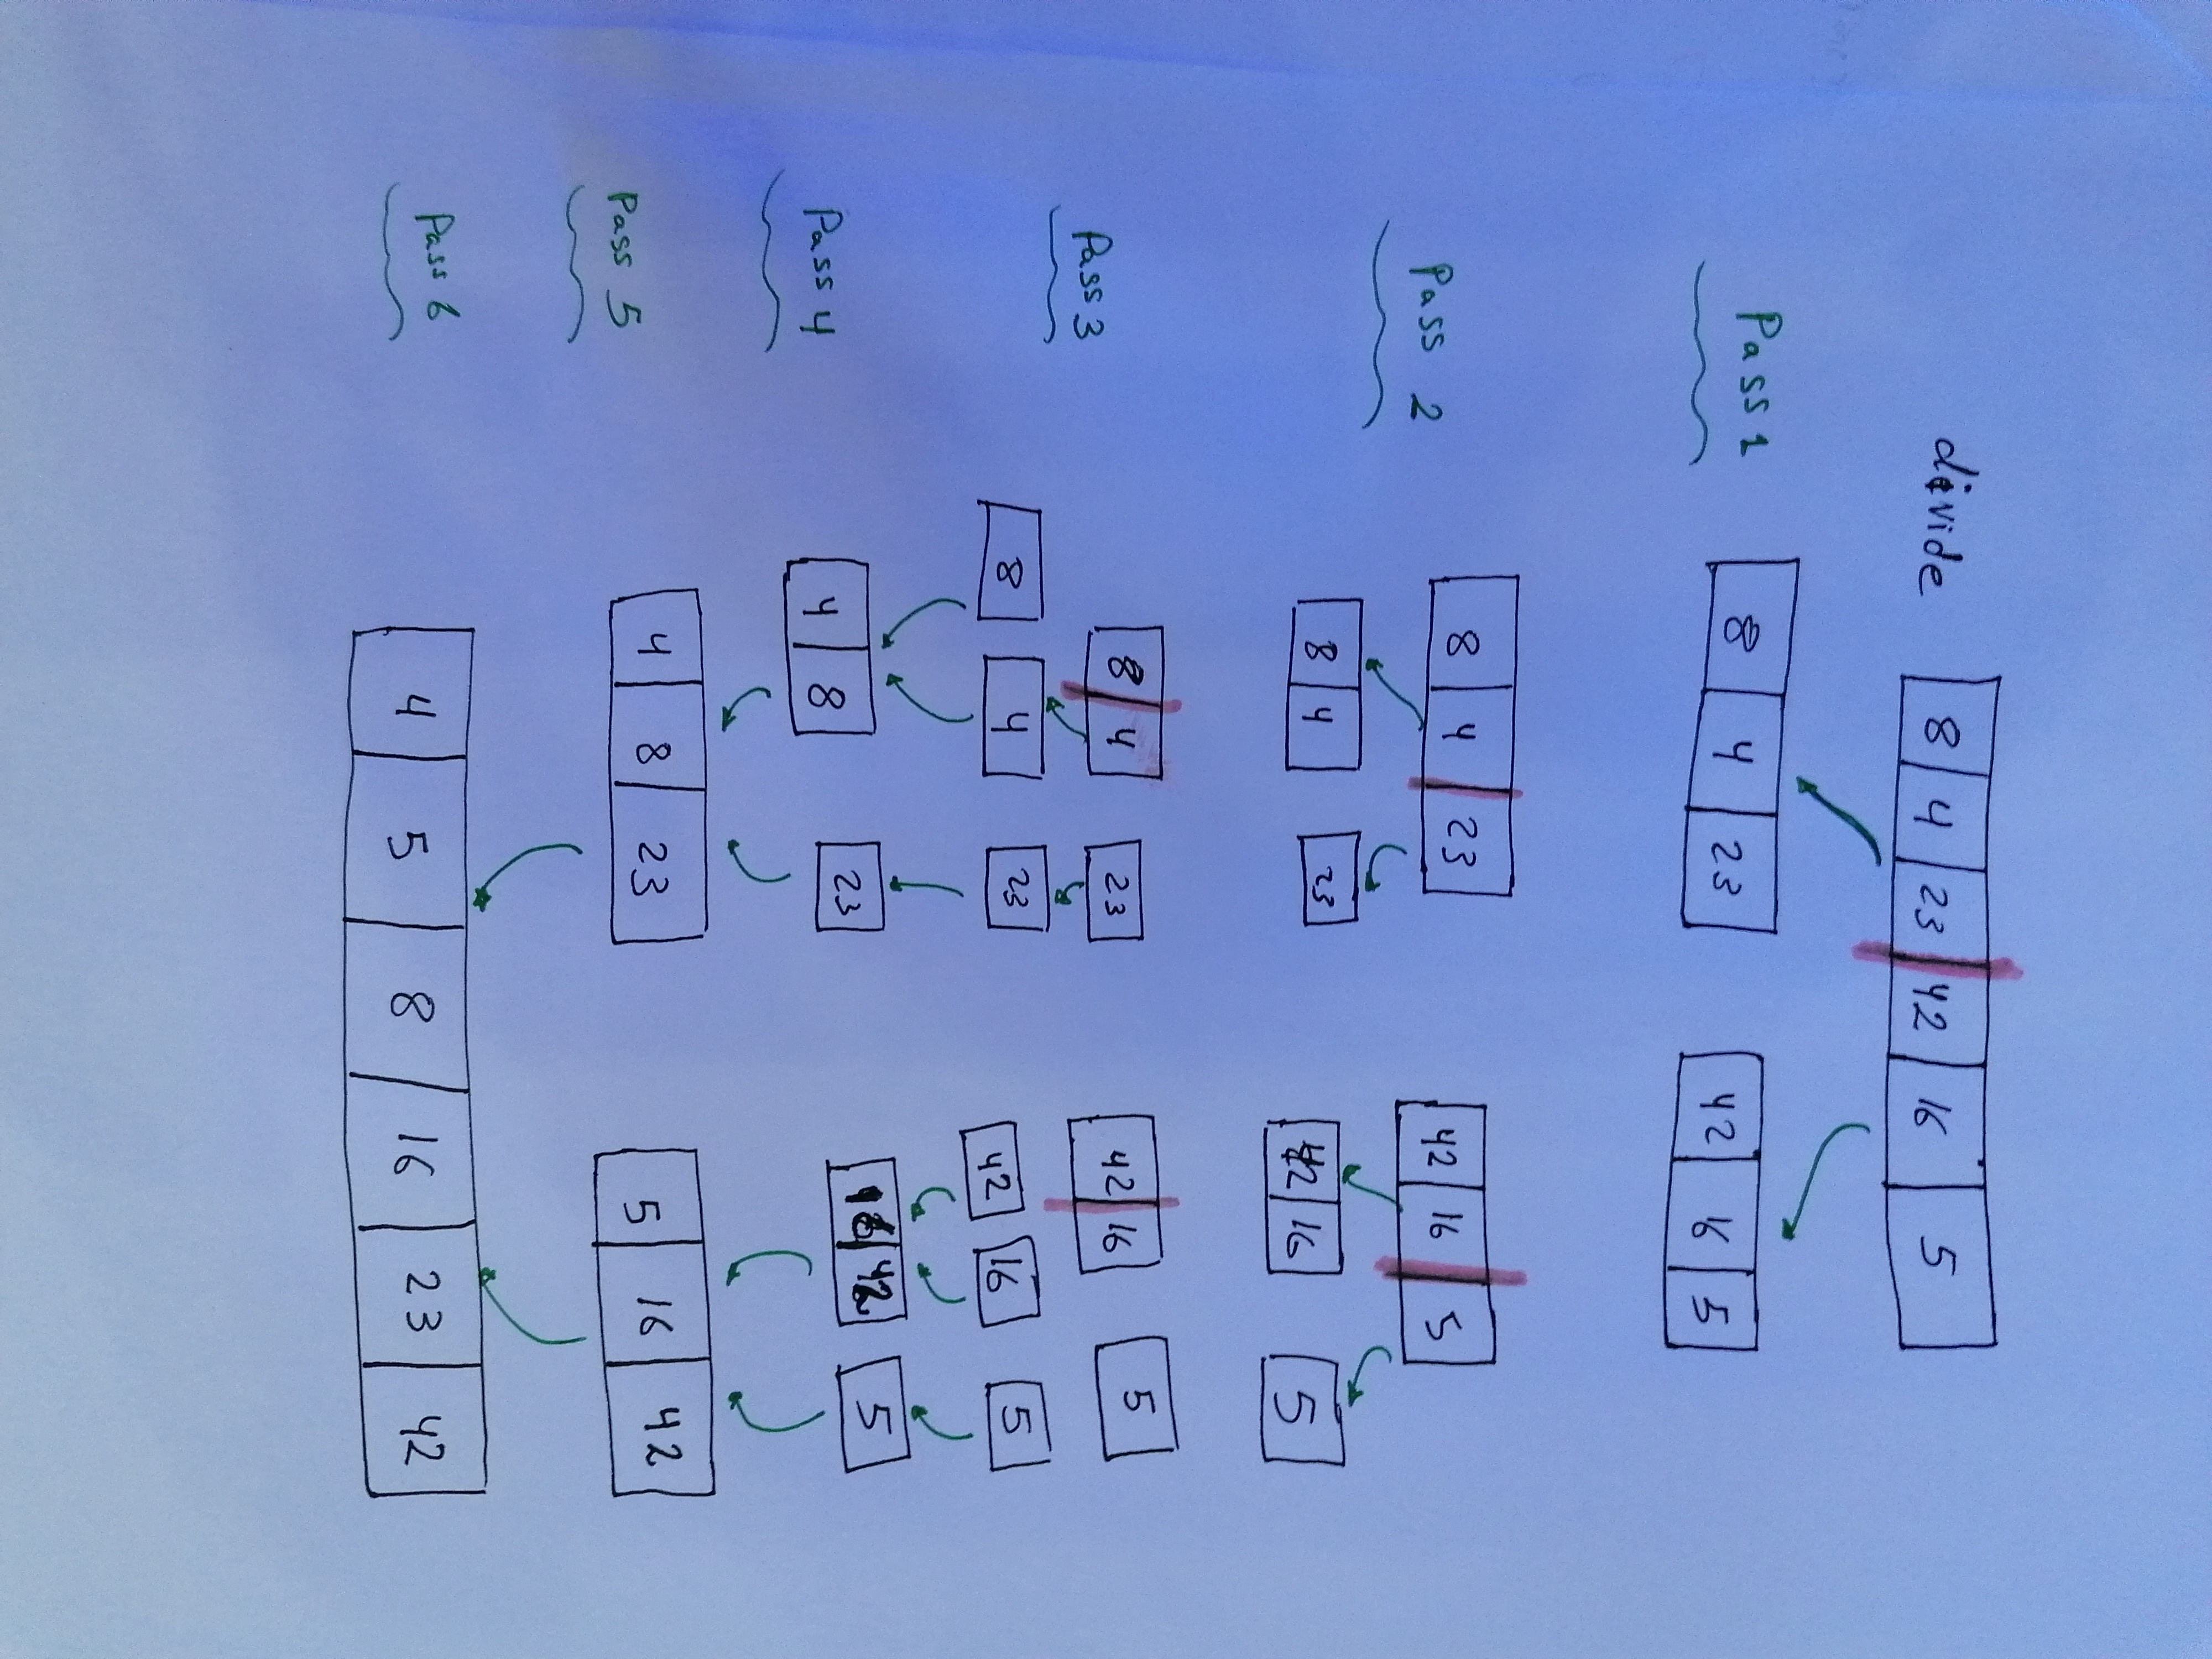 divide 8 4 23 42 16 5
Pass 1 8 4 23 42 16 5
Pass 2 8 4 23 42 16 5
8 4 23 42 16 5
Pass 3 8 4 23 42 16 5
8 4 23 42 16 5
Pass 4 4 8 23 16 42 5
Pass 5 4 8 23 5 16 42
Pass 6 4 5 8 16 23 42